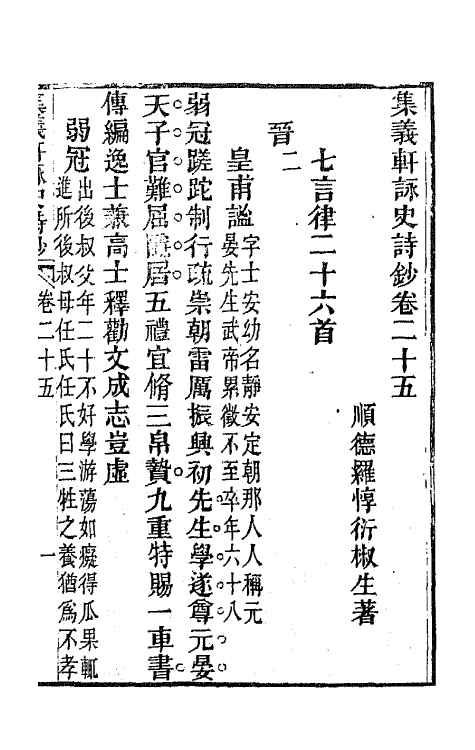 集義軒詠史詩鈔卷二十五
順德羅惇衍椒生著
七言律二十六首
晉二
皇甫謐字士安幼名靜安定朝那人人稱元
晏先生武帝累徵不至卒年六十八
弱冠蹉跎制行疏崇朝雷厲振興初先生學遂尊元晏
天子官難屈居五禮宜脩三帛贄九重特賜一車書
傳編逸士兼高士釋勸文成志豈虛
弱冠出後叔父年二十不好學游蕩如癡得瓜果輒
進所後叔母任氏任氏曰三牲之養猶為不孝
集義軒詠史詩鈔 卷二十五 一